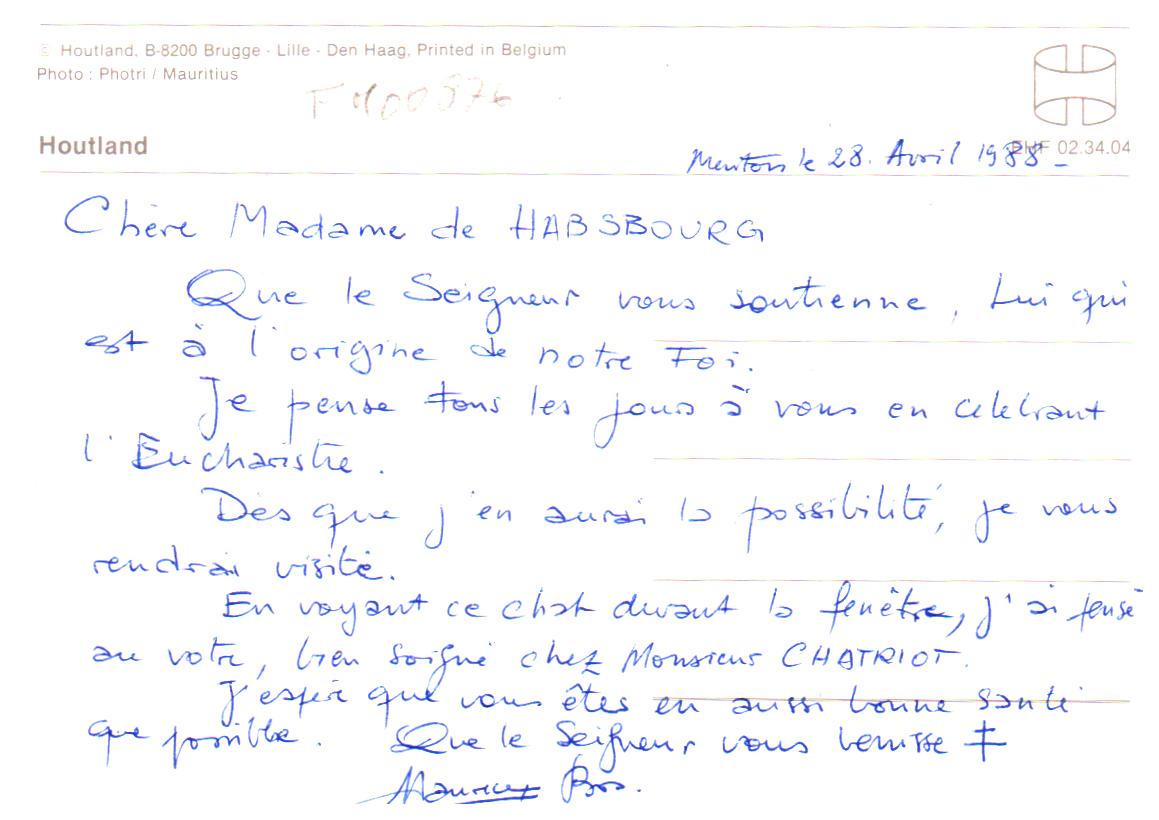 © Houtland, B-8200 Brugge - Lille - Den Haag, Printed in Belgium
Photo : Photri / Mauritius
Houtland
PHF 02.34.04
Menton le 28. Avril 1988 -
Chère Madame de HABSBOURG
Que le Seigneur vous soutienne, Lui qui
est à l'origine de notre Foi.
Je pense tous les jours à vous en célébrant
l'Eucharistie.
Dès que j'en aurai la possibilité, je vous
rendrai visite.
En voyant ce chat devant la fenêtre, j'ai pensé
au votre, bien soigné chez Monsieur CHATRIOT.
J'espère que vous êtes en aussi bonne santé
que possible. Que le Seigneur vous bénisse ‡
Maurice